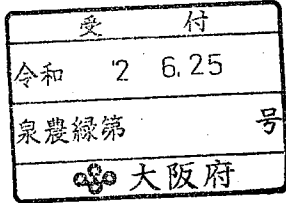 受 付
令和 '2 6.25
泉農緑第 号
大阪府